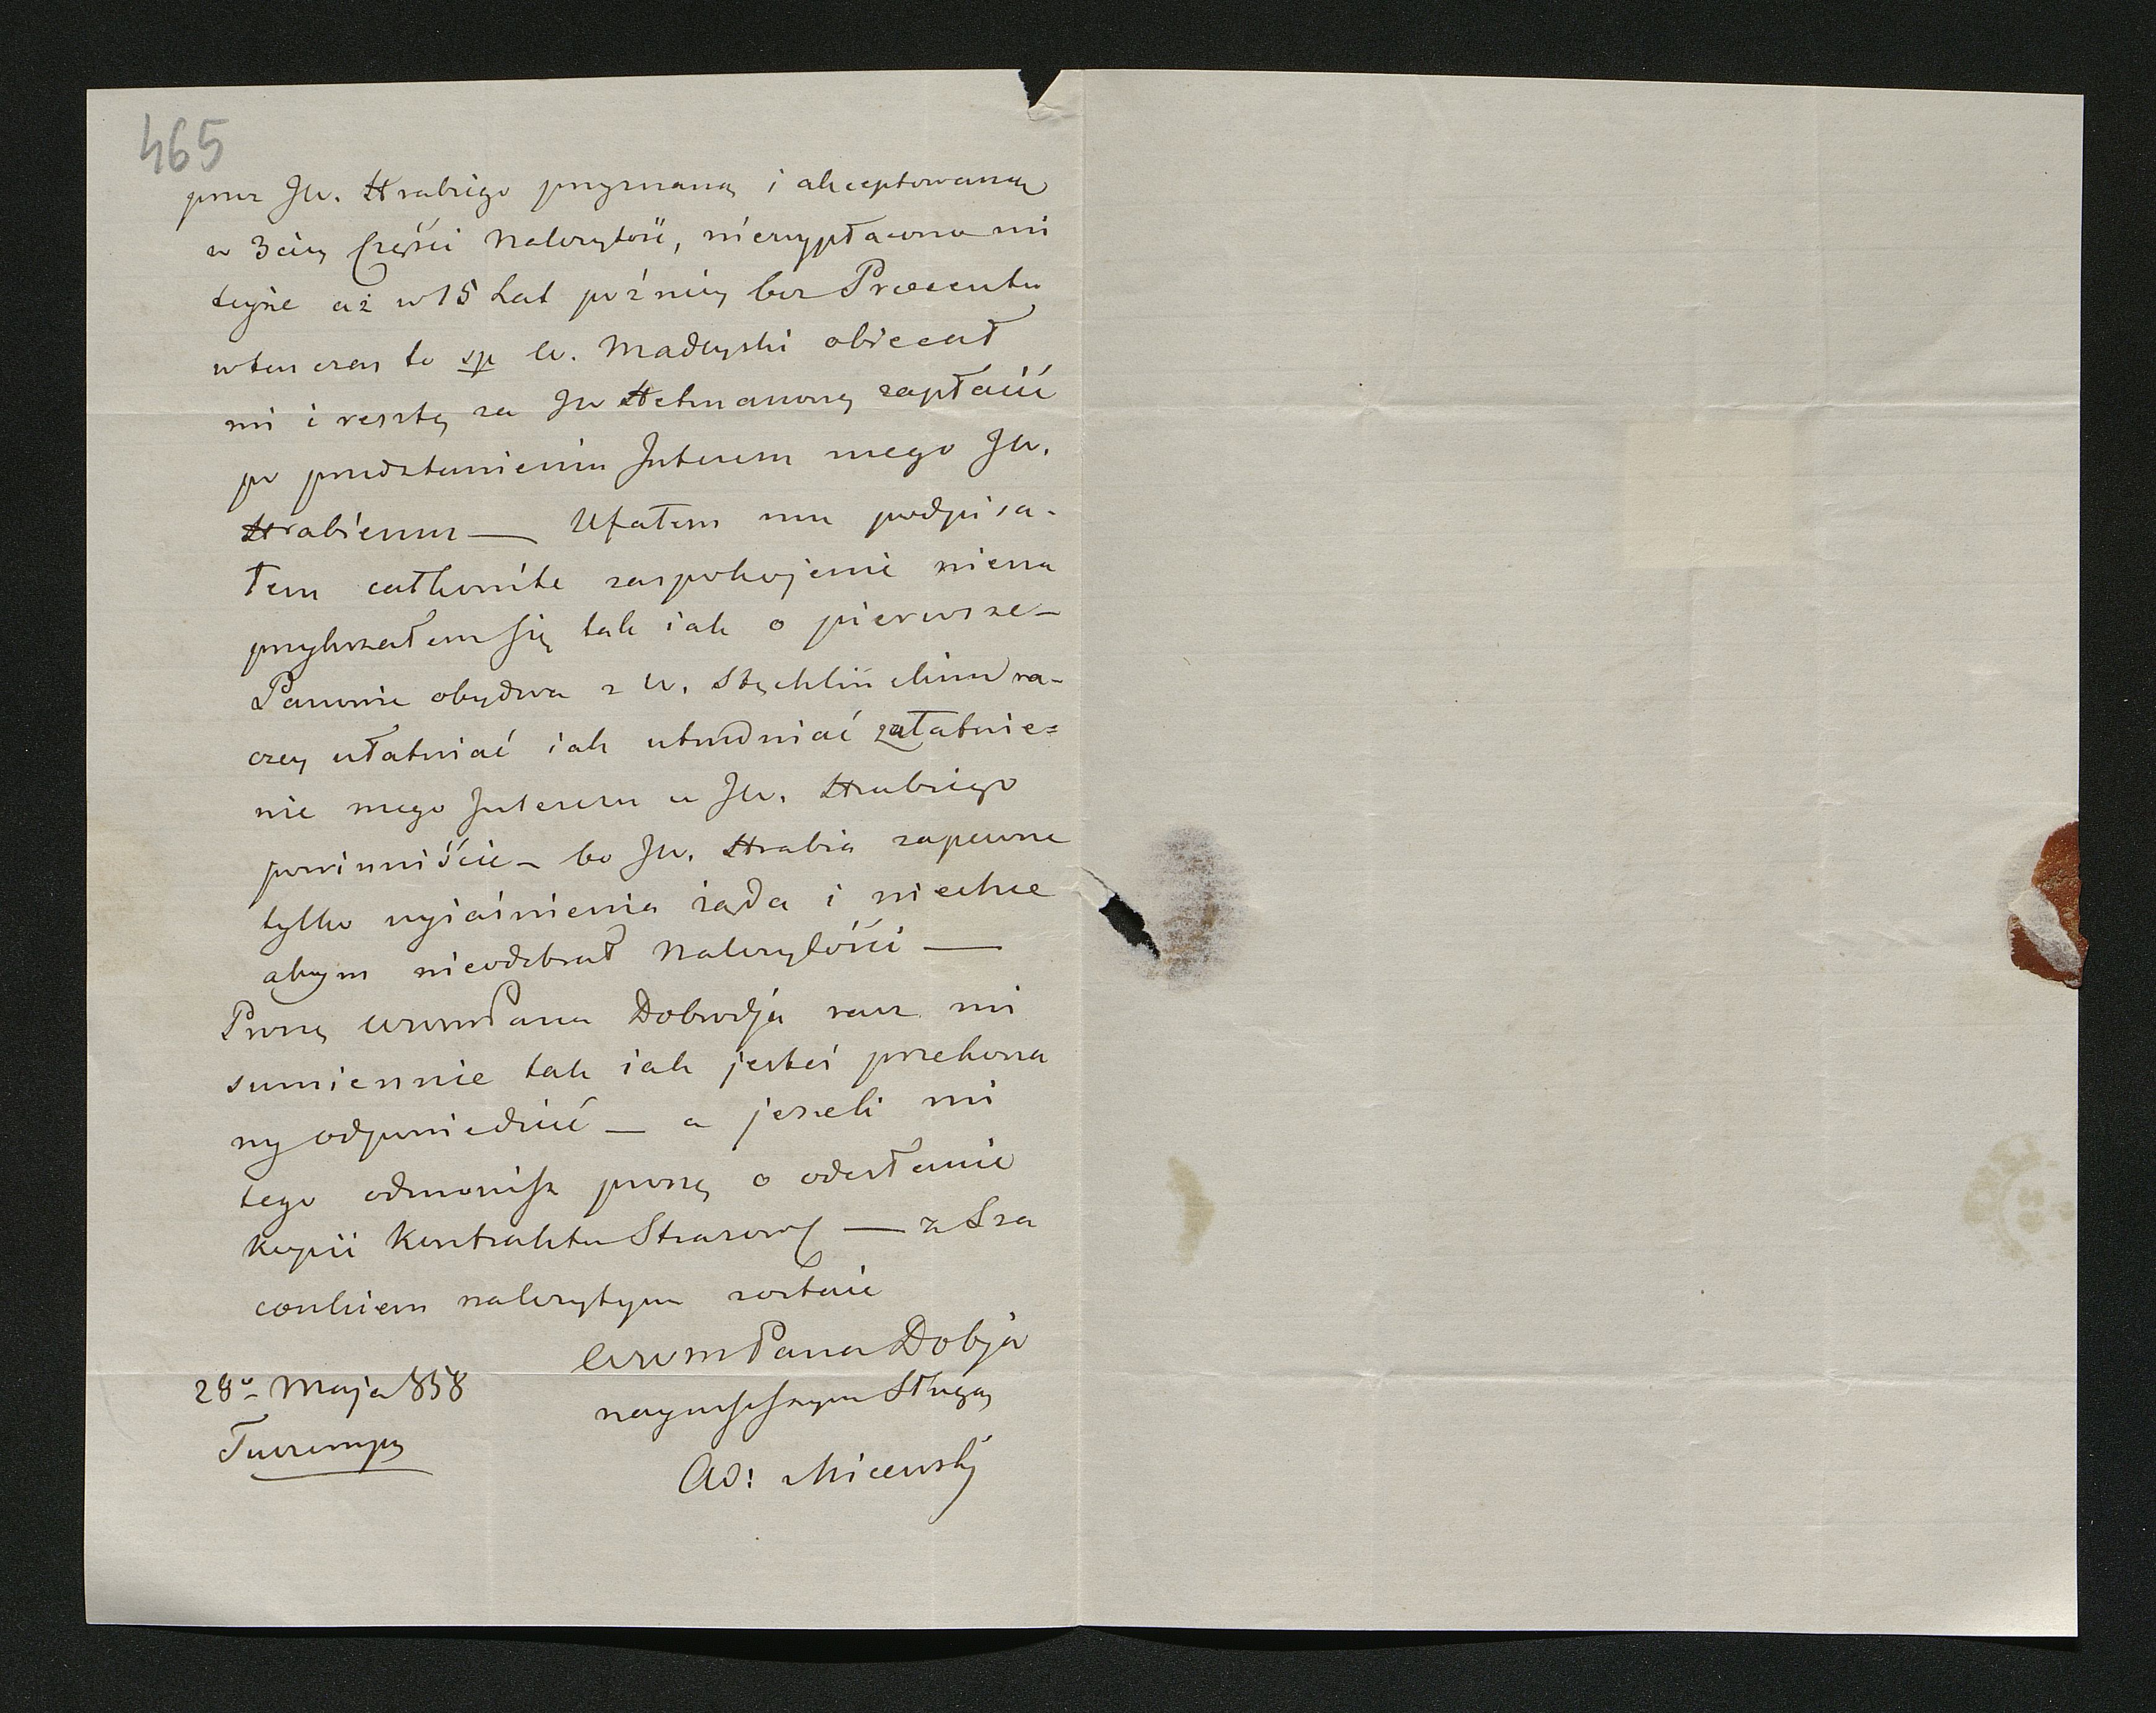 465
przez JW. Hrabiego przyznaną i akceptowaną
w 3ciey Części Należytości, niewypłacona mi
teyże aż w 15 Lat późniey bez Procentu
wten czas to sp W. Madeyski obiecał
mi i resztę za JW Hetmanową zapłacić
po przedstawieniu Interesu mego JW.
Hrabiemu — Ufałem mu podpisa-
łem całkowite zaspokojenie nieza
przykrzałem się tak iak o pierwsze —
Panowie obydwa z W. Stechlińskim ra-
czey ułatwiać iak utrudniać załatwie=
nie mego Interesu u JW. Hrabiego
powinniście — bo JW. Hrabia zapewne
tylko wyiaśnienia żąda i niechce
abym nieodebrał Należytości —
Proszę WWM Pana Dobrodzja racz mi
sumiennie tak iak jesteś przekona
ny odpowiedzieć — a jeżeli mi
tego odmówisz proszę o odesłanie
kopii Kontraktu — z Sza
cunkiem należytym zostaię
WWM Pana Dobja
nayniższym Sługą
28o Maja 858
Ad: Micewski